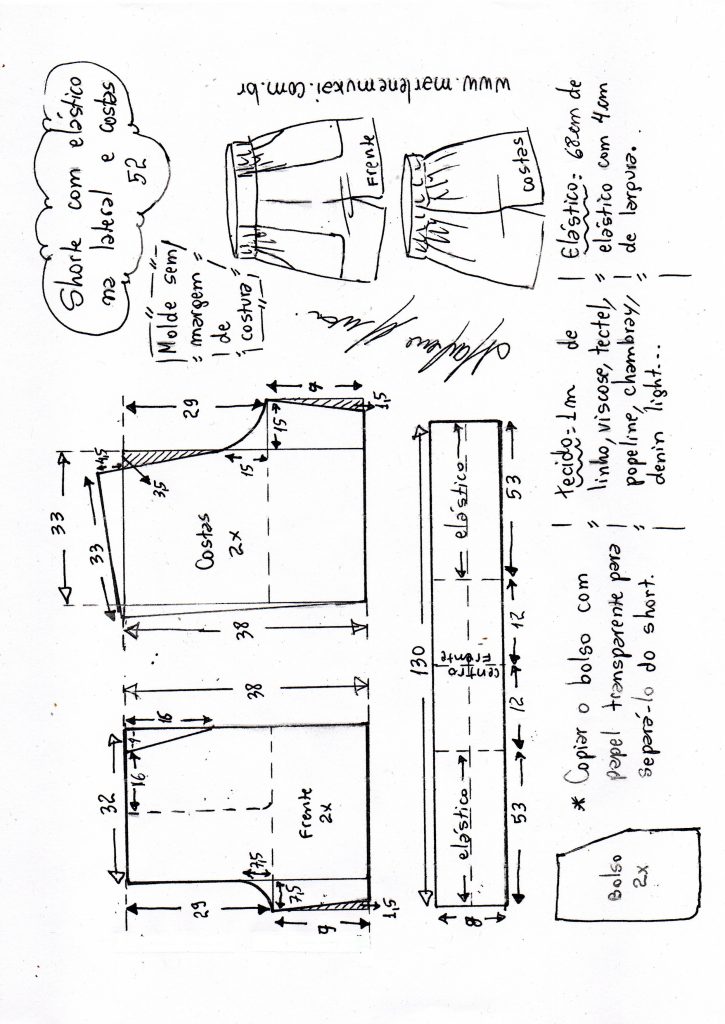 Shorte com elástico
na lateral e costas
52
Molde sem
margem
de
costura
www.marlenemukai.com.br
Frente
costas
32
16
4
16
38
Frente
2x
7,5
7,5
29
9
1,5
33
33
4,5
3,5
29
15
15
9
1,5
38
Costas
2x
130
elástico
centro
frente
elástico
8
53
12
12
53
Bolso
2x
* Copiar o bolso com
papel transparente para
separá-lo do short.
tecido=1m de
linho, viscose, tectel,
popeline, chambray,
denin light...
Elástico= 68cm de
elástico com 4cm
de largura.